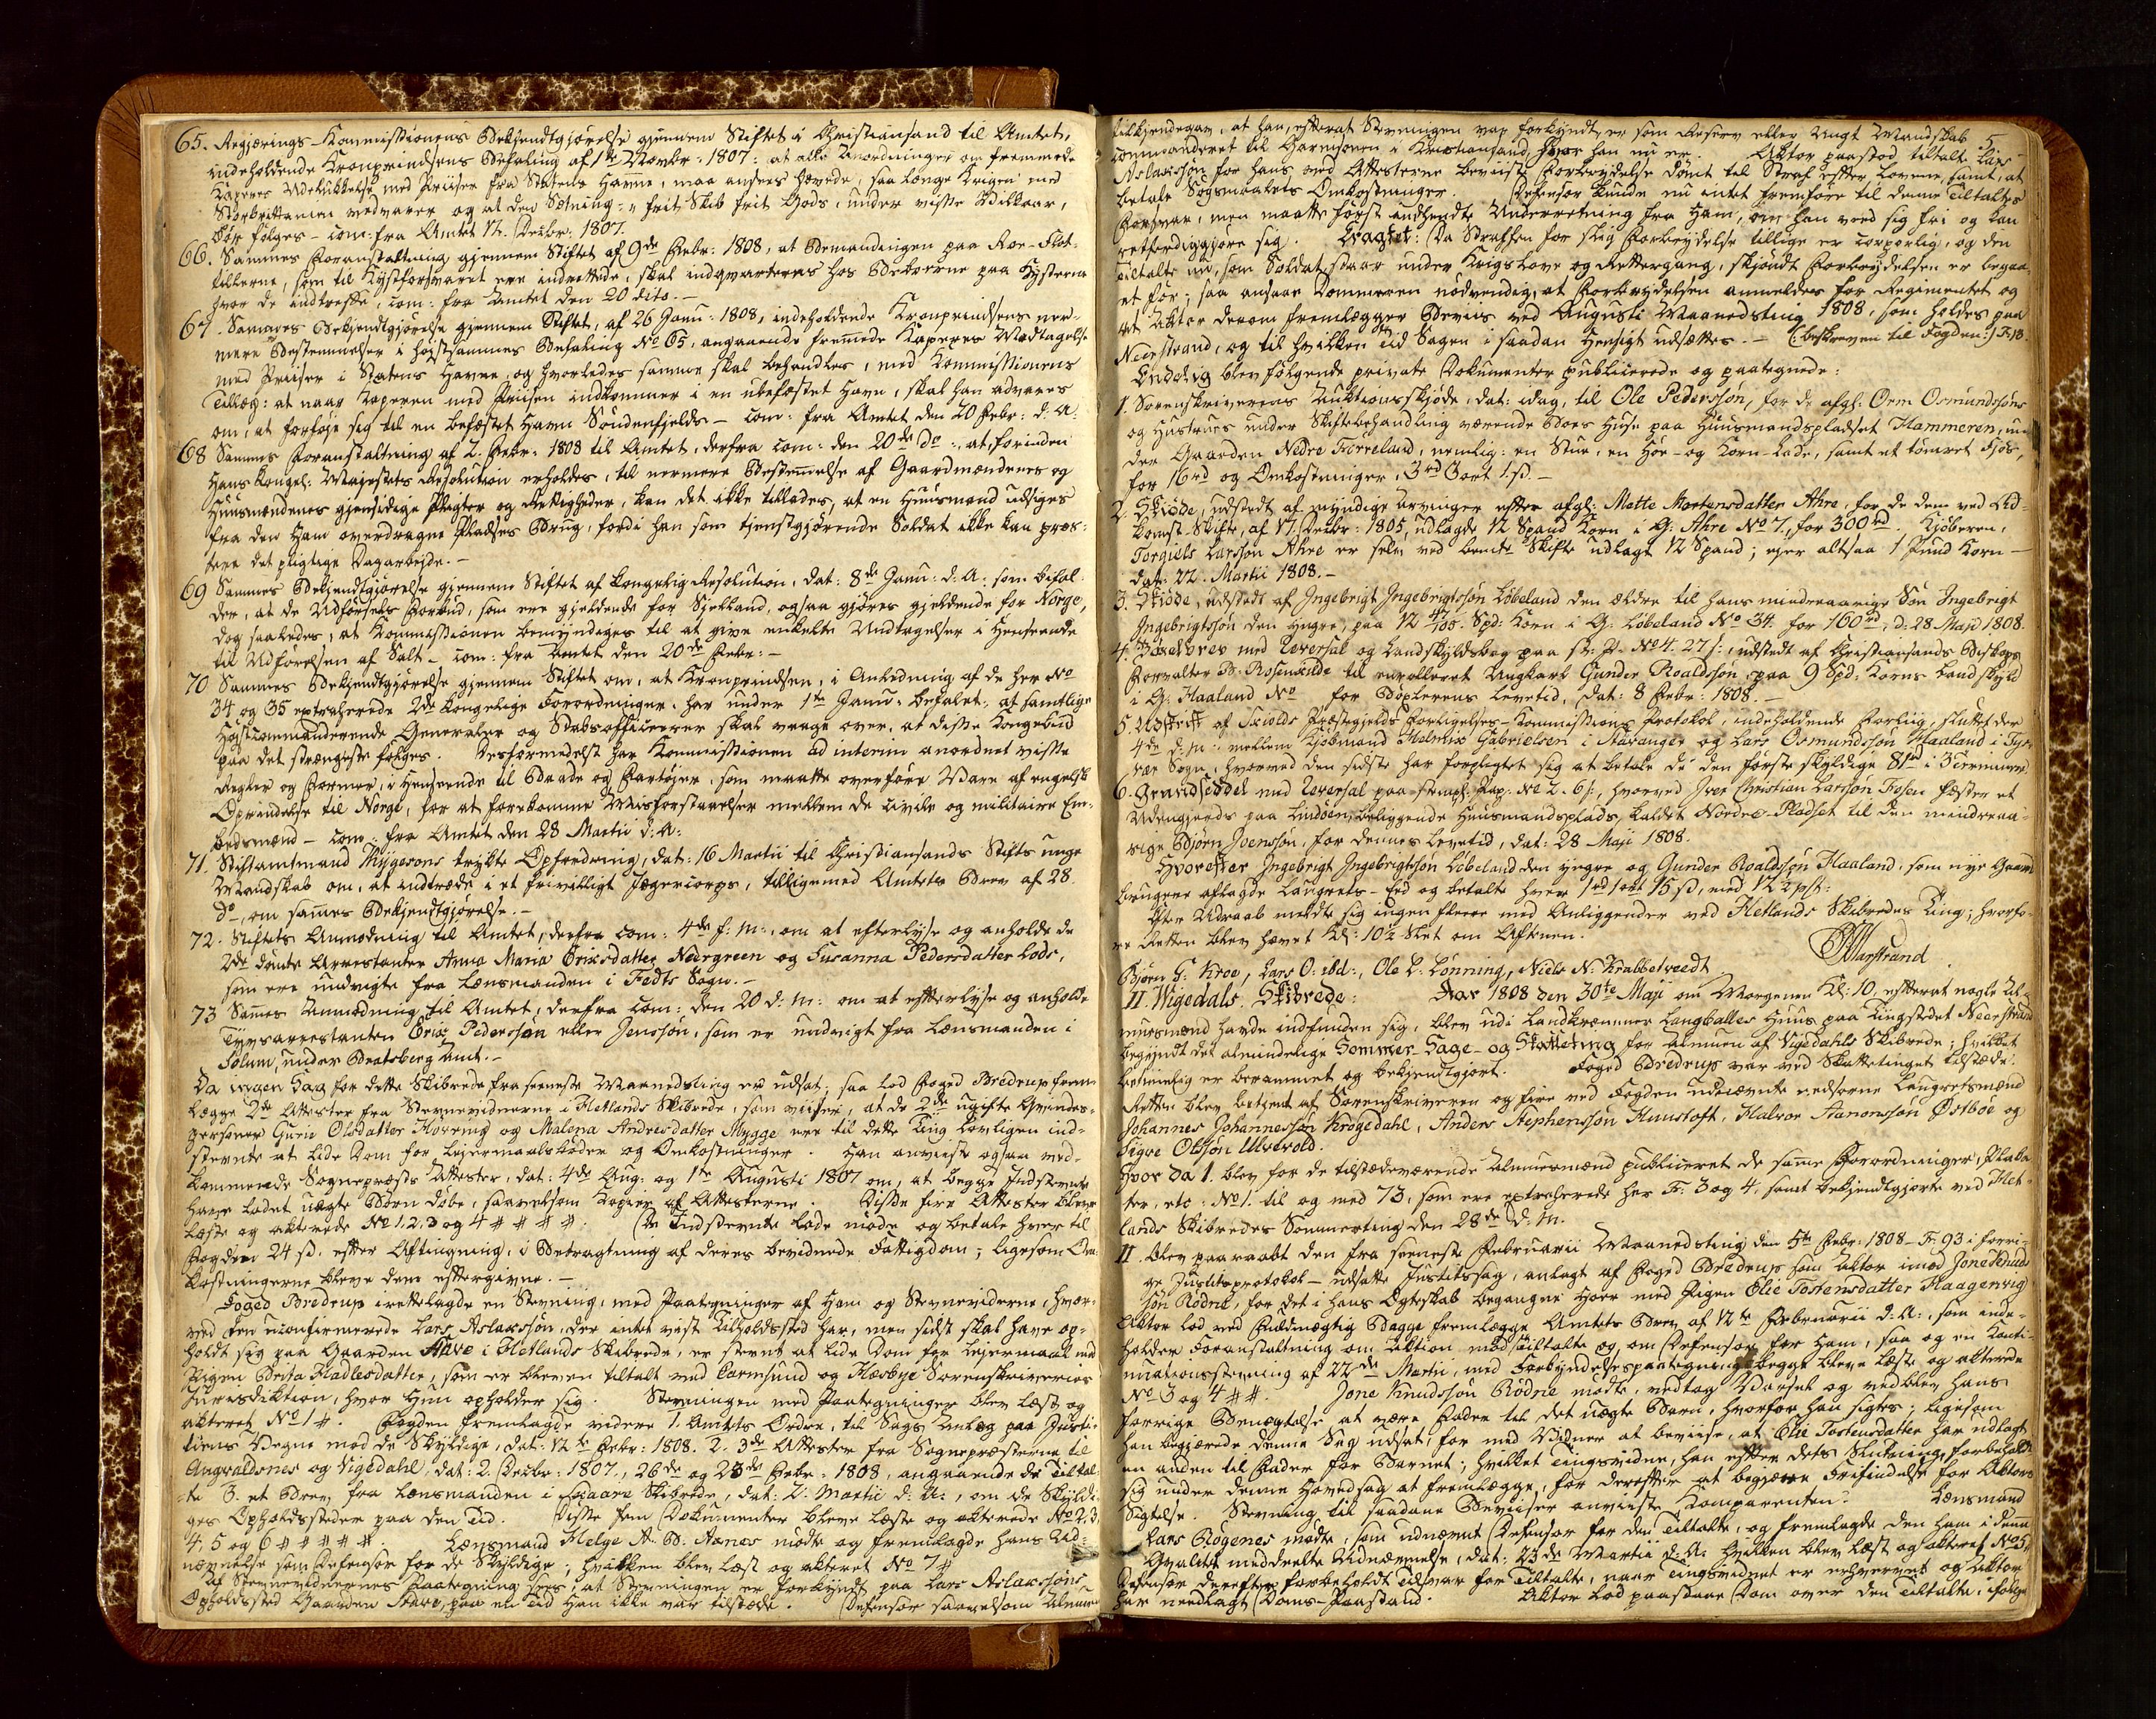 65. Regjærings-Kommissionens Bekjendtgjørelse gjennem Stiftet i Christiansand til Amtet,
indeholdende Kronprindsens Befaling af 1te Novbr: 1807: at alle Anordninger om fremmede
Kaperes Udelukkelse med Priiser fra Statens Havne, maa ansees hævede, saa længe Krigen med
Storbrittanien vedvarer og at den Sætning: "frit Skib frit Gods, under visse Vilkaar,
bør følges - com: fra Amtet 12. Decbr: 1807.
66. Sammes Foranstaltning gjennem Stiftet af 9de Febr: 1808, at Bemandingen paa Roe-Flot-
tillerne, som til Kystforsvaret ere indrettede, skal indqvarteres hos Beboerne paa Kysterne
hvor de indtreffe, com: fra Amtet den 20 dito. -
67. Sammes Bekjendtgjørelse gjennem Stiftet, af 26 Janu: 1808, indeholdende Kronprindsens nær-
mere Bestemmelser i højstsammes Befaling No 65, angaaende fremmede Kaperes Modtagelse
med Priiser i Statens Havne, og hvorledes samme skal behandles, med Kommissionens
Tillæg: at naar Kaperen med Priisen indkommer i en ubefæstet Havn, skal han advares
om, at forføje sig til en befæstet Havn Søndenfjelds - com: fra Amtet den 20 Febr: d: A:
68 Sammes Foranstaltning af 2. Febr: 1808 til Amtet, derfra com: den 20de do:, at, forinden
Hans Kongel: Majestæts Resolution erholdes, til nærmere Bestemmelse af Gaardmændenes og
Huusmændenes gjensidige Pligter og Rettigheder, kan det ikke tillades, at en Huusmand udsiges
fra den Ham overdragne Pladses Brug, fordi han som tjenstgjørende Soldat ikke kan præs-
tere det pligtige Dagarbejde. -
69 Sammes Bekjendtgjørelse gjennem Stiftet af Kongelig Resolution, dat: 8de Janu: d: A: som befal-
der, at de Udførsels Forbud, som ere gjeldende for Sjelland, ogsaa gjøres gjeldende for Norge,
dog saaledes, at Kommissionen bemyndiges til at give enkelte Undtagelser i Henseende
til Udførselen af Salt - com: fra Amtet den 20de Febr: -
70 Sammes Bekjendtgjørelse gjennem Stiftet om, at Kronprindsen, i Anledning af de her No
34 og 35 extraherede 2de Kongelige Forordninger, har under 1te Janu: befalet, at samtlige
Højstcommanderende Generaler og Stabsofficerer skal vaage over, at disse Kongebud
paa det strængeste følges. Desformedelst har Kommissionen ad interim anordnet visse
Regler og Former, i Henseende til Baade og Fartøjer, som maatte overføre Vare af engelsk
Oprindelse til Norge, for at forekomme Misforstaaelser mellem de civile og militaire Em-
bedsmænd - com: fra Amtet den 28 Martii d: A:
71. Stiftamtmand Thygesons trykte Opfordring, dat: 16 Martii til Christiansands Stifts unge
Mandskab om, at indtræde i et frivilligt Jægercorps, tilligemed Amtets Brev af 28
do, om sammes Bekjendtgjørelse. -
72. Stiftets Anmodning til Amtet, derfra com: 4de f: M:, om at efterlyse og anholde de
2de dømte Arrestanter Anna Maria Eriksdatter Nedrgreen og Susanna Pedersdatter Lods,
som ere undvigte fra Lænsmanden i Fedts Sogn. -
73 Sammes Anmodning til Amtet, derfra com: den 20 d: M: om at efterlyse og anholde
Tyvsarrestanten Erik Pederssøn eller Jenssøn, som er undvigt fra Lænsmanden i
Solum, under Bratsberg Amt. -
Da ingen Sag for dette Skibrede fra seeneste Maanedsting er udsat; saa lod Foged Bredrup frem-
lægge 2de Attester fra Stevnevidnerne i Hetlands Skibrede, som viiser, at de 2de ugifte Qvindes-
personer Gurie Olsdatter Hovring og Malena Andresdatter Mygge ere til dette Ting lovligen ind-
stevnte at lide Dom for Lejermaalsbøder og Omkostninger. Han anviiste ogsaa ved-
kommende Sognepræsts Attester, dat: 4de Aug: og 1te Augusti 1807 om, at begge Indstevnte
have ladet uægte Børn døbe, saavelsom Kopier af Attesterne. Disse fire Attester bleve
læste og akterede No 1, 2, 3 og 4 # # # #. De Indstevnte lode møde og betale hver til
Fogden 24 ß. efter Aftingning, i Betragtning af deres bevidnede Fattigdom; ligesom Om-
kostningerne bleve dem eftergivne. -
Foged Bredrup irettelagde en Stevning, med Paategninger af Ham og Stevneviderne, hvor-
ved den uconfirmerede Lars Aslakssøn, der intet vist Tilholdssted har, men sidst skal have op-
holdt sig paa Gaarden Stave i Hetlands Skibrede, er stevnt at lide Dom for Lejermaal med
Pigen Brita Hadlesdatter, som er bleven tiltalt ved Carmsund og Hæsbye Sorenskriveries
Jurisdiktion, hvor Hun opholder sig. Stevningen med Paategninger blev læst og
akteret No 1 #. Fogden fremlagde videre 1. Amtets Ordre, til Sags Anlæg paa Justi-
tiens Vegne mod de Skyldige, dat: 12te Febr: 1808. 2. 3de Attester fra Sognepræsterne til
Augvaldsnes og Vigedahl, dat: 2. Decbr: 1807, 26de og 23de Febr: 1808, angaaende de Tiltal-
te 3. et Brev fra Lænsmanden i Skaare Skibrede, dat: 2. Martii d: A:, om de Skyldi-
ges Opholdssteder paa den Tid. Disse fem Dokumenter bleve læste og akterede No 2, 3,
4, 5 og 6 # # # # #. Lænsmand Helge A. B. Aanes mødte og fremlagde hans Ud-
nævnelse som Defensor for de Skyldige; hvilken blev læst og akteret No 7 #
Af Stevnevidnernes Paategning sees, at Stevningen er forkyndt paa Lars Aslakssøns
Opholdssted Gaarden Stave, paa en Tid Han ikke var tilstæde. Defensor saavelsom Almuen
5.
tilkjendegav, at han, efterat Stevningen var forkyndt, er som Reserv eller Ungt Mandskab
commanderet til Garnisonen i Kristiansand, hvor han nu er. Aktor paastod tiltalt Lars
Aslakssøn for hans ved Attesterne beviiste Forbrydelse dømt til Straf efter Lovene, samt, at
betale Søgsmaalets Omkostninger. Defensor kunde nu intet fremføre til denne Tiltaltes
Forsvar, men maatte først indhendte Underretning fra Ham, om han veed sig fri og kan
retferdiggjøre sig. Eragtet: Da Straffen for slig Forbrydelse tillige er corporlig, og den
tiltalte nu, som Soldat, staar under Krigslove og Rettergang, skjøndt Forbrydelsen er begaa-
et før; saa ansaae Dommeren nødvendig, at Forbrydelsen anmeldes for Regimentet og
at Aktor derom fremlægger Beviis ved Augusti Maanedsting 1808, som holdes paa
Neerstrand, og til hvilken Tid Sagen i saadan Hensigt udsættes. - (:beskreven til Fogden:) F. 13.
Endelig blev følgende private Dokumenter publicerede og paategnede:
1. Sorenskriverens Auktionsskjøde, dat: idag, til Ole Pederssøn, for de afgl: Orm Osmundssøns
og Hustrues under Skiftebehandling værende Boes Huse paa Huusmandspladset Hammeren, un-
der Gaarden Nedre Førreland, nemlig: en Stue, en Høe- og Korn-Lade, samt et tømret Fjøs,
for 16rd og Omkostninger, 3rd 3ort 1. ß. -
2. Skiøde, udstedt af myndige Arvinger efter afgl: Mette Mortensdatter Ahre, for de dem ved Ud-
komst-Skifte, af 17 Decbr: 1805, udlagde 12 Spand Korn i G: Ahre No 7, for 300rd. Kjøberen,
Torgiels Larssøn Ahre er selv ved bemte Skifte udlagt 12 Spand; ejer altsaa 1 Pund Korn -
dat: 22. Martii 1808. -
3. Skiøde, udstedt af Ingebrigt Ingebrigtssøn Løbeland den ældre til hans mindreaarige Søn Ingebrigt
Ingebrigtssøn den yngre, paa 12 Spd: Korn i G: Løbeland No 34. for 160rd, d: 28 Maji 1808.
4. Bøxelbrev med Reversal og Landskyldsbog paa st: P: No 4. 27 ß:, udstedt af Christiansands Bispkops
Forvalter B. Rosenkilde til enrolleret Ungkarl Gunder Roaldssøn, paa 9 Spd: Korns Landskyld
i G: Haaland No for Bøxlerens Levetid, dat: 8 Febr: 1808. -
5. Udskrift af Skiolds Præstegjelds Forligelses-Kommissions Protokol, indeholdende Forliig, sluttet den
4de d: M: mellem Kjøbmand Helmik Gabrielsen i Stavanger og Lars Osmundssøn Haaland i Tys-
vær Sogn, hvorved den sidste har forpligtet sig at betale de den første skyldige 81rd i 3 Terminer.
6. Grundseddel med Reversal paa stempl: Pap: No 2. 6 ß:, hvorved Iver Christian Larssøn Fosen fæster et
Udengjerds paa Lindøen, beliggende Huusmandsplads, kaldet Nordre-Pladset til den mindreaa-
rige Bjørn Jvenssøn, for dennes Levetid, dat: 28 Maji 1808.
Hvorefter Ingebrigt Ingebrigtssøn Løbeland den yngre og Gunder Roaldssøn Haaland, som nye Gaard-
brugere aflagde Laugrets-Eed og betalte hver 1rd 1ort 15 ß, med 12½ p:ct:
Efter Udraab meldte sig ingen fleere med Anliggender ved Hetlands Skibredes Ting; hvorfo-
re Retten blev hævet Kl: 10½ Slet om Aftenen.
Marstrand
Bjørn G: Kroe, Lars O: ibd:, Ole L: Lønning, Niels N: Krabbetveedt
II. Wigedals, Skibrede: Aar 1808 den 30te Maji om Morgenen Kl: 10, efterat nogle Al-
muesmænd havde indfunden sig, blev udi Landkræmmer Langballes Huus paa Tingstedet Neerstrand
begyndt det almindelige Sommer-Sage- og Skatteting for Almuen af Vigedahls Skibrede; hvilket
betimelig er berammet og bekjendtgjort. Foged Bredrup var ved Skattetinget tilstæde.
Retten blev betjent af Sorenskriveren og fire ved Fogden udnævnte eedsorne Laugretsmænd
Johannes Johannessøn Krøgedahl, Anders Stephenssøn Hunstoft, Halvor Aanonssøn Østbøe og
Sigve Olssøn Ulvevold.
Hvor da 1. blev for de tilstædeværende Almuesmænd publiceret de samme Forordninger, Plaka-
ter, etc: No 1. til og med 73, som ere extraherede her F: 3 og 4, samt bekjendtgjorte ved Het-
lands Skibredes Sommerting den 28de d: M.
II. Blev paaraabt den fra seeneste Februarii Maanedsting den 5te Febr: 1808 - F: 93 i forri-
ge Justitsprotokol - udsatte Justitssag, anlagt af Foged Bredrup som Aktor imod Jone Knud-
søn Rødne, for det i hans Ægteskab begangne Hoer med Pigen Elie Tostensdatter Haagenvig
Aktor lod ved Fuldmægtig Bagge fremlægge Amtets Brev af 12te Februarii d: A:, som inde-
holder Foranstaltning om Aktion mod Tiltalte og om Defensor for Ham, saa og en Konti-
nuationsstevning af 22de Martii, med Forkyndelsespaategning, begge bleve læste og akterede
No 3 og 4 # #. Jone Knudssøn Rødne mødte, vedtog Varsel og vedblev hans
forrige Benægtelse at være Fader til det uægte Barn, hvorfor han sigtes; ligesom
han begjærede denne Sag udsat, for med Vidner at beviise, at Elie Tostensdatter har udlagt
en anden til Fader for Barnet; hvilket Tingsvidne, han efter dets Slutning forbeholdt
sig under denne Hovedsag at fremlægge, for derefter at begjære Frifindelse for Aktors
Sigtelse. Stevning til saadane Beviiser anviiste Komparenten. Lænsmand
Lars Bøgenes mødte, som udnævnt Defensor for den Tiltalte, og fremlagde den ham i denne
Qvalitet meddeelte Udnævnelse, dat: 23de Martii d: A: hvilken blev læst og akteret No 5,
Defensor derefter forbeholdt Tilsvar for Tiltalte, naar Tingsvidnet er erhvervet og Aktor
har nedlagt Doms-Paastand. Aktor lod paastaae Dom over den Tiltalte, ifølge